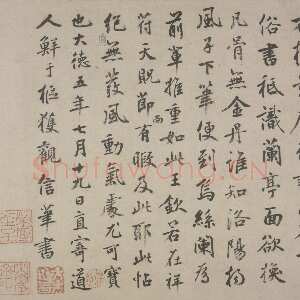 俗書祗識蘭亭面欲換
凡骨無金丹誰知洛陽楊
風子下筆便到烏絲闌為
前輩推重如此王欽若在祥
符天貺節尚有暇及此耶此帖
絕無發風動氣處尤可寶
也大德五年七月十九日直寄道
人鮮于樞獲觀信筆書